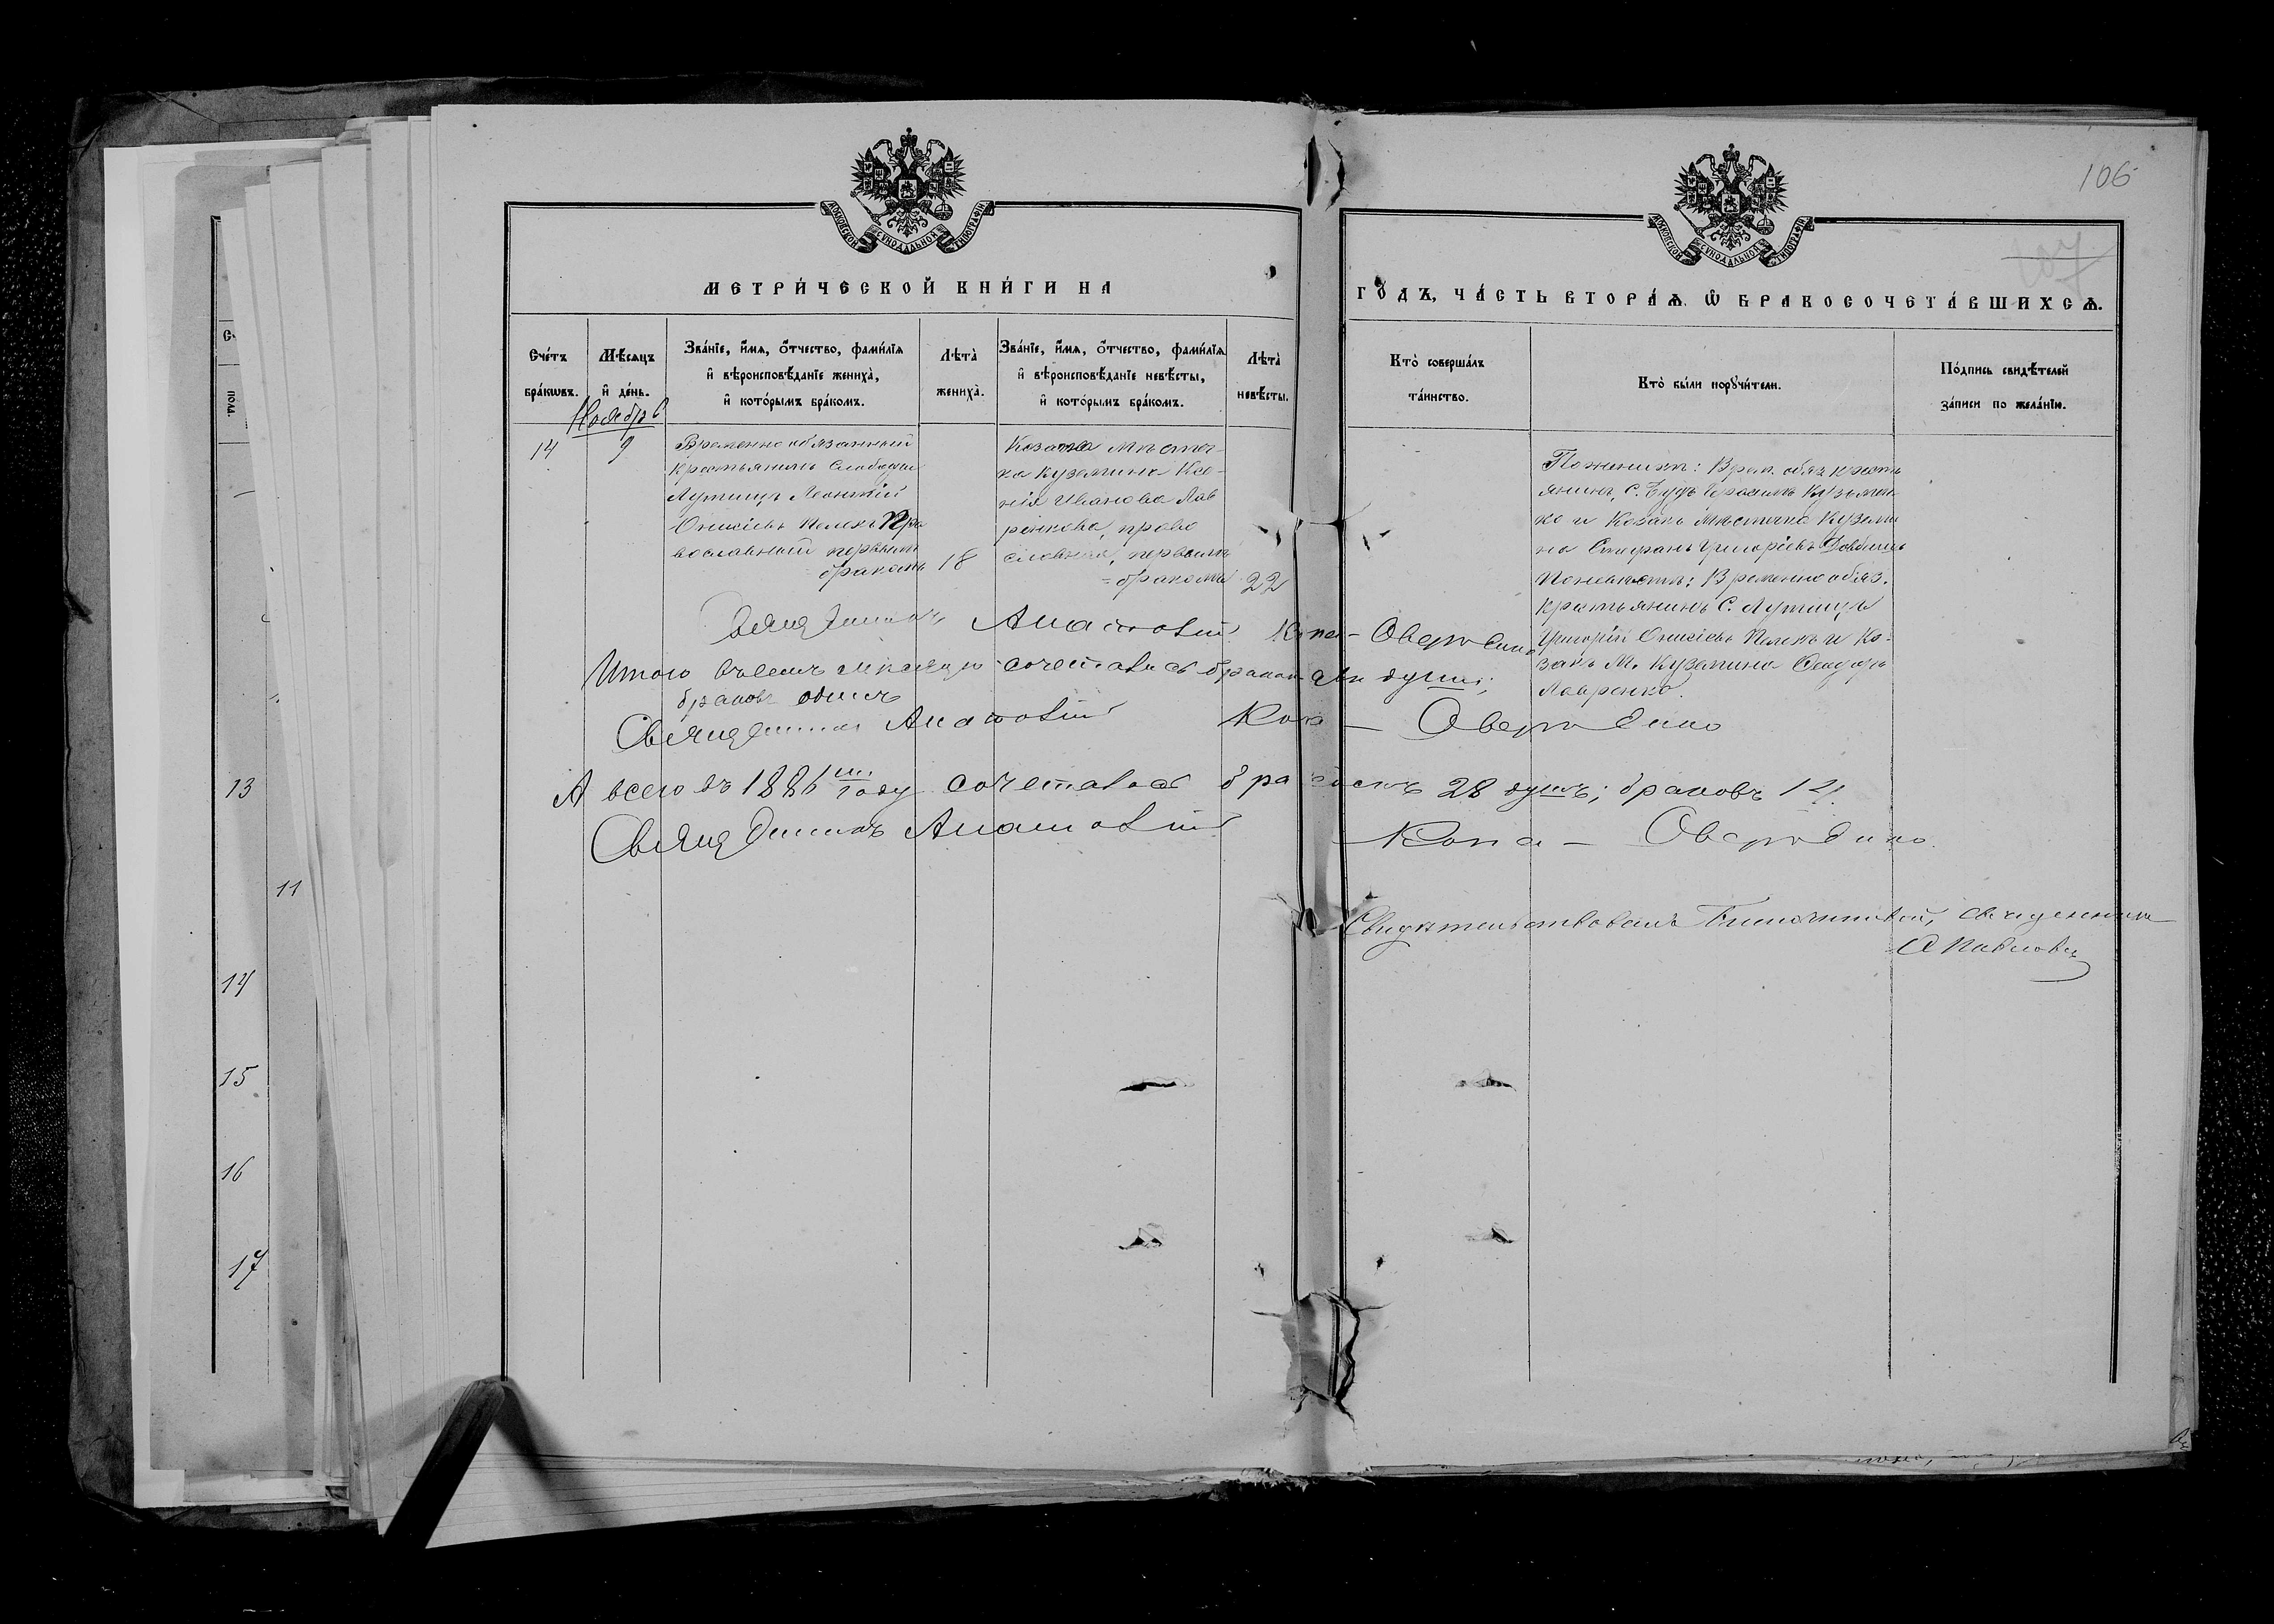 106
МОСКОВСКОЙ СѴНОДАЛЬНОЙ ТИПОГРАФІИ
МОСКОВСКОЙ СѴНОДАЛЬНОЙ ТИПОГРАФІИ
МЕТРИ́ЧЕСКОЙ КНИ́ГИ НА
ГО́ДЪ, ЧА́СТЬ ВТОРА́Ѧ Ѽ БРАКОСОЧЕТА́ВШИХСѦ.
Сче́тъ
бра́кѡвъ.
Мѣ́сѧцъ
и҆ де́нь.
Зва́нїе, и҆́мѧ, ѻ҆́тчество, фами́лїѧ
и҆ вѣроисповѣ́данїе жениха̀,
и҆ кото́рымъ бра́комъ.
Лѣта̀
жениха̀.
Зва́нїе, и҆́мѧ, ѻ҆́тчество, фами́лїѧ
и҆ вѣроисповѣ́данїе невѣ́сты,
и҆ кото́рымъ бра́комъ.
Лѣта̀
невѣ́сты.
Кто̀ соверша́лъ
та́инство.
Кто̀ бы́ли порꙋчи́тели.
По́дпись свидѣ́телей
за́писи по жела́нїю.
Ноябрь
14
9
Временно обязанный
крестьянинъ Слободы
Лутищъ Леонтій
Онисіевъ Пра
вославный первымъ
бракомъ
18
Козачка Мѣстеч-
ка Куземина Ксе-
нія Иванова Лав
ренкова, право
славная, первымъ
=бракомъ
22
По женихѣ: Врем. обяз. кресть
янинъ, С. Будъ Герасимъ Кузьмен-
ко и Козакъ Мѣстечка Кузьми
на Стефанъ Григоріевъ
По невѣстѣ: Временно обяз.
крестьянинъ С. Лутищъ
Григорій Онисіевъ и Ко-
закъ М. Куземина
Лавренко.
Священникъ Анатолій Копа-
Итого въ семъ мѣсяцѣ сочеталось бракомъ двѣ души;
браковъ одинъ
Священникъ Анатолій Копа -
А всего въ 1886 году сочеталось бракомъ 28 душъ; браковъ 14.
Священникъ Анатолій Копа -
Свидѣтельствовалъ Благочинный, священникъ
13
11
14
15
16
17